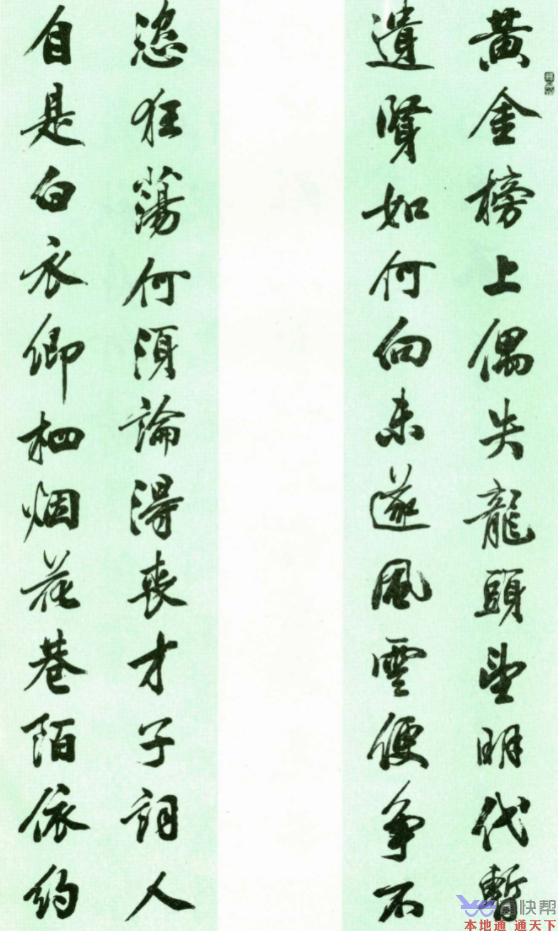 黃金榜上偶失龍頭望明代暫
遺賢如何向未遂風雲便爭不
恣狂蕩何須論得喪才子詞人
自是白衣卿相烟花巷陌依約
快帮
本地通 通天下